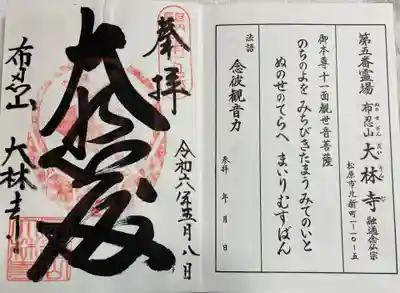 第五番霊場
布忍山 大林寺 融通念仏宗
ぬのせさん だいりんじ
松原市北新町一-一〇-五
御本尊十一面観世音菩薩
のちのよを みちびきたまう みてのいと
ぬのせのてらへ まいりむすばん
法語 念彼観音力
参拝 年 月 日
奉拝
令和六年五月八日
大悲殿
布忍山 大林寺